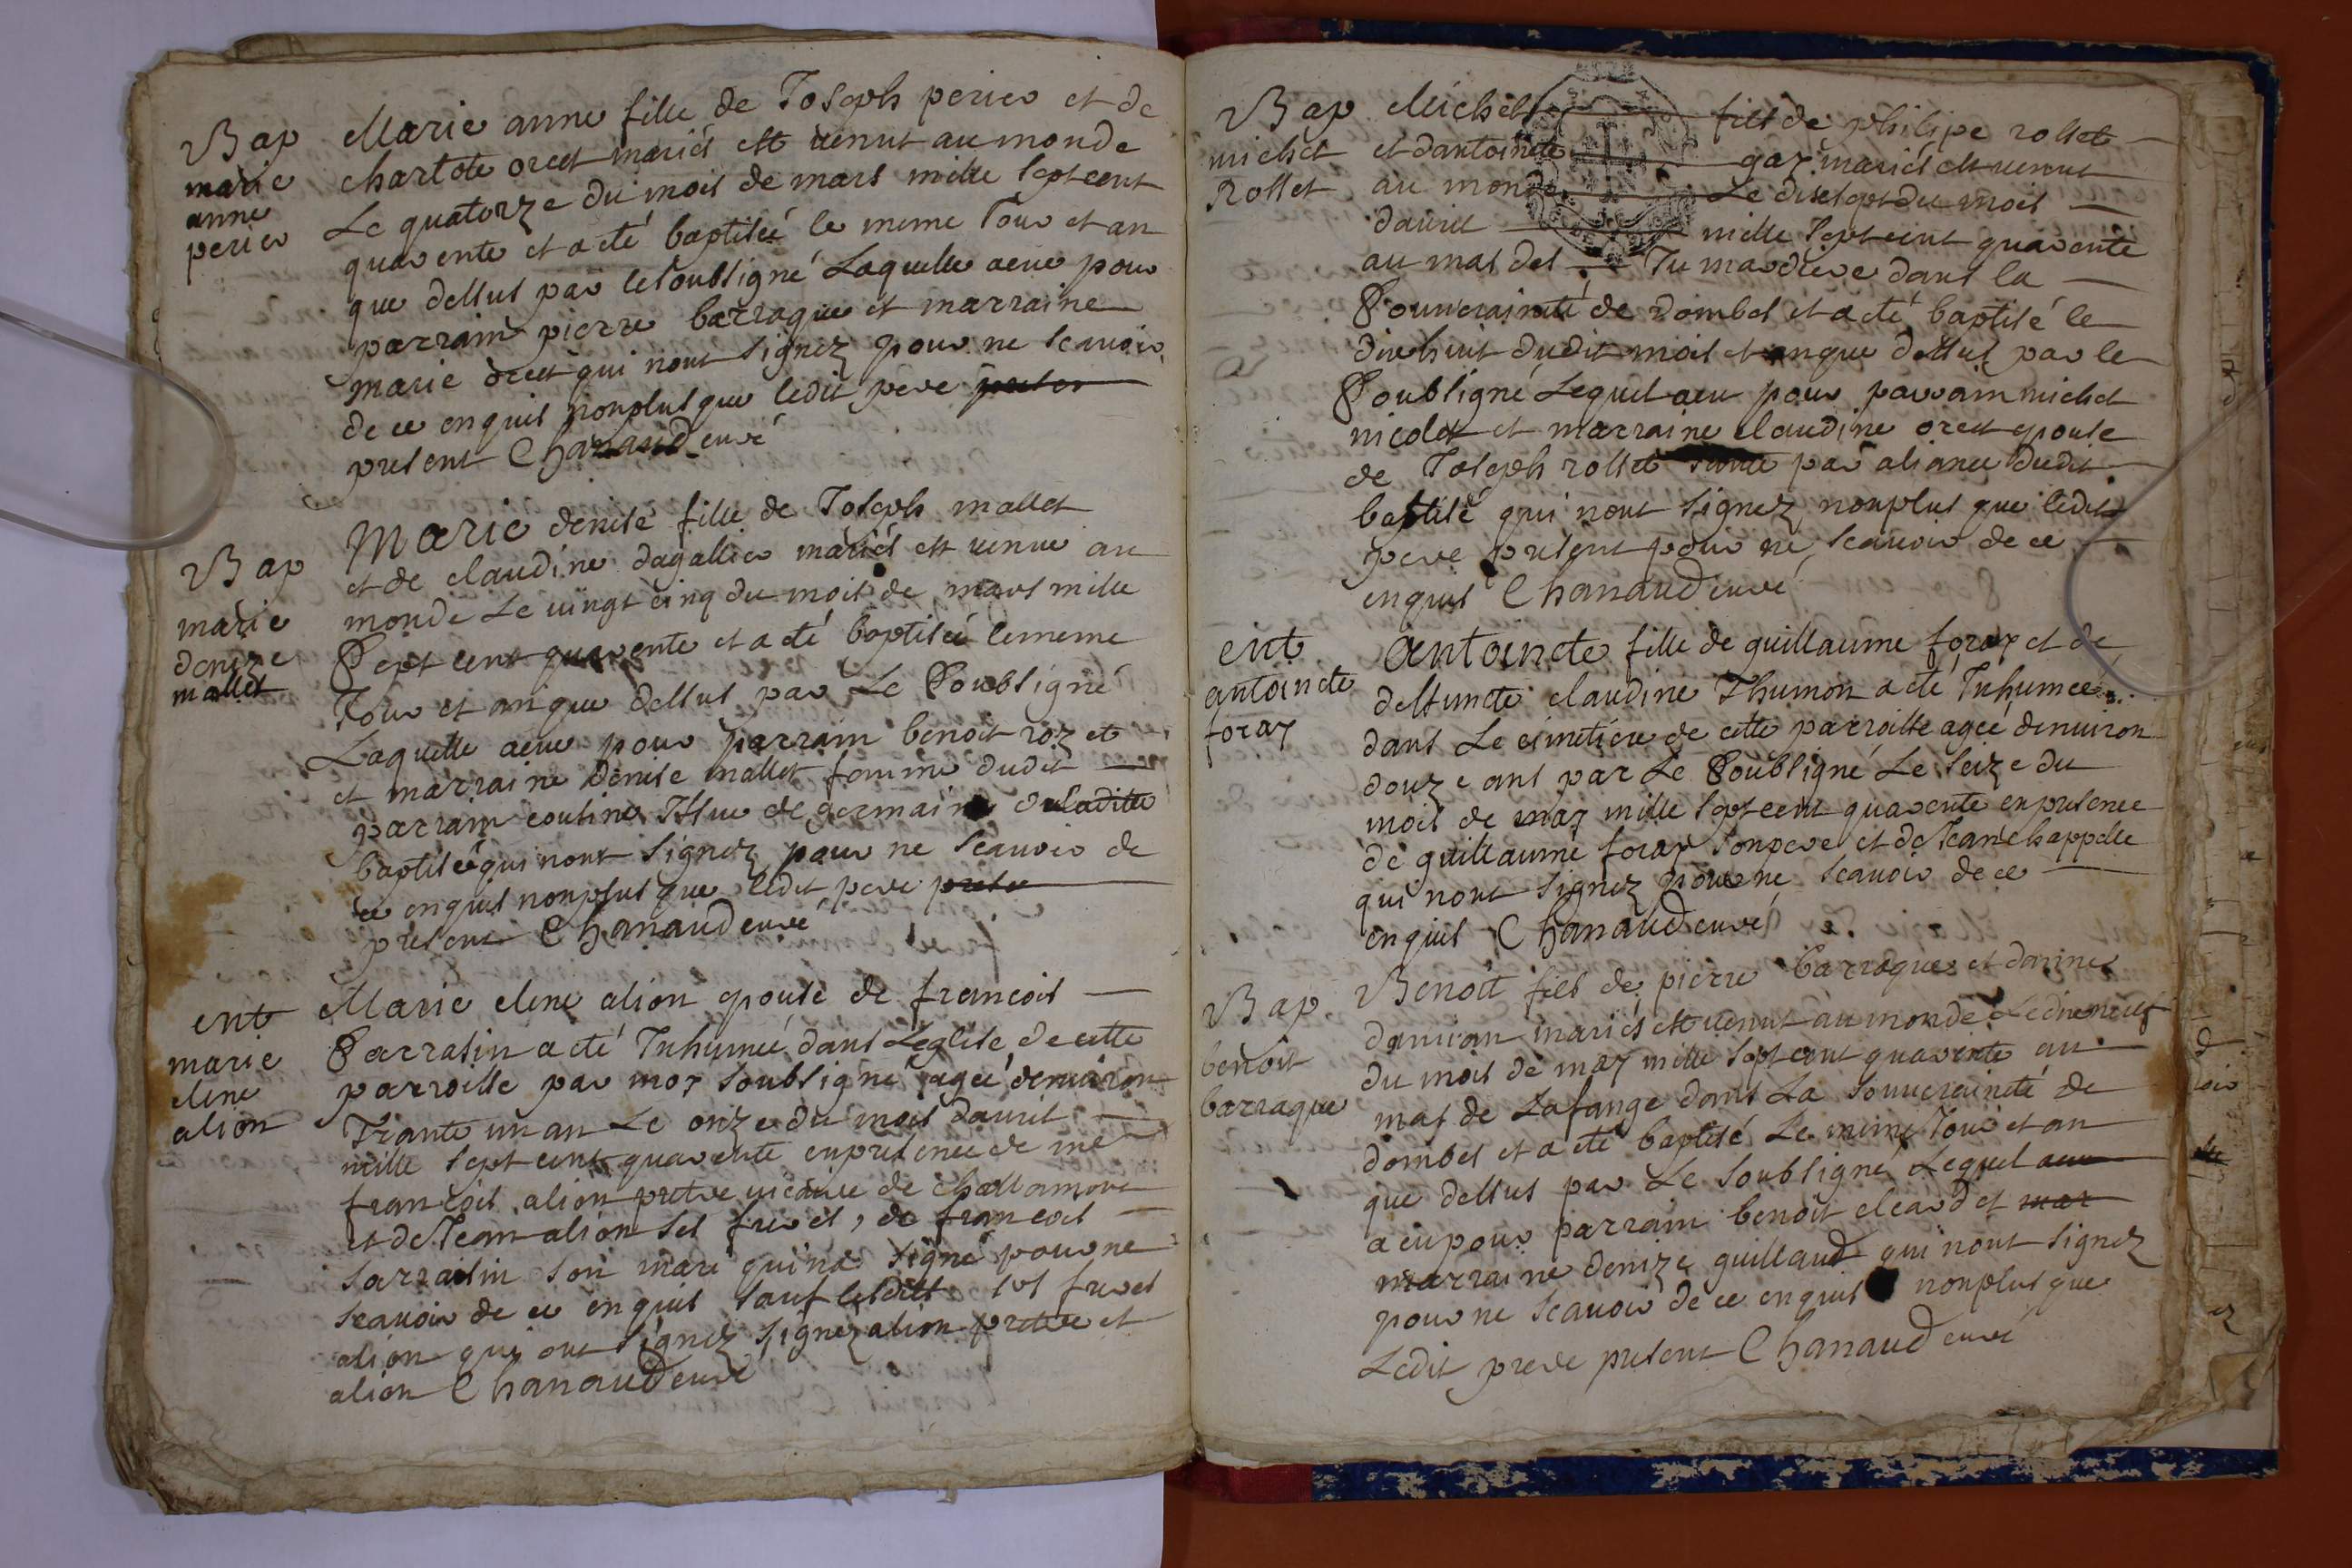 Bap
marie
anne
perier
Marie anne fille de Joseph perier et de
charlote orcet mariés est venut au monde
Le quatorze du mois de mars mille sept cent
quarente et a eté baptisée le meme Jour et an
que dessus par le soubsigné Laquelle a eue pour
parrain pierre barraque et marraine
marie orcet qui nont signez pour ne scavoir
de ce enquis nonplus que ledit pere
present Chanaud curé
Bap
marie
denize
mallet
Marie denise fille de Joseph mallet
et de claudine dagallier mariés est venue au
monde Le vingt cinq du mois de mars mille
Sept cent quarente et a eté baptisée lememe
Jour et an que dessus par Le Soubsigné
Laquelle a eue pour parrain benoit roz et
et marraine denise mallet famme dudit
parrain cousine Issue de germaine de laditte
baptisée qui nont signez pour ne scavoir de
ce enquis nonplus que ledit pere
present Chanaud curé
ent
marie
elene
alion
Marie elene alion epouse de francois
Sarrasin a eté Inhumée dans Leglise de cette
parroisse par moy soubsigné agée denviron
Trante un an Le onze du mois davril
mille sept cent quarente en presence de me
francois alion pretre vicaire de challamont
et de Jean alion ses freres, de francois
sarrasin son mari qui na signé pour ne
scavoir de ce enquis sauf lesdits ses freres
alion qui ont signez signez alion pretre et
alion Chanaud curé
Bap
michel
Rollet
Michel fils de philipe rollet
et dantoinete gay mariés est venut
au monde Le disept du mois
davril mille sept cent quarente
au mas des Jumardiere dans la
Souveraineté de Dombes et a eté baptisé le
dixhuit dudit mois et an que dessus par le
Soubsigné Lequel a eu pour parrain michel
nicolet et marraine claudine orcet epouse
de Joseph rollet tante par aliance dudit
baptisé qui nont signez nonplus que ledit
pere present pour ne scavoir de ce
enquis Chanaud curé
ent
antoinete
foray
Antoinete fille de guillaume foray et de
deffuncte claudine Thumon a eté Inhumée
dans Le cimetiere de cette parroisse agée denviron
douze ans par Le Soubsigné Le seize du
mois de may mille sept cent quarente en presence
de guillaume foray son pere et de Jean chappelle
qui nont signez pour ne scavoir de ce
enquis Chanaud curé
Bap
benoit
barraque
Benoit fils de pierre barraque et danne
damian mariés est venut au monde Le dixneuf
du mois de may mille sept cent quarente au
mas de Lafange dans La souveraineté de
dombes et a eté baptisé Le meme Jour et an
que dessus par Le soubsigné Lequel
a eu pour parrain benoit cleard et
marraine denize guillaud qui nont signez
pour ne scavoir de ce enquis nonplus que
Ledit pere present Chanaud curé